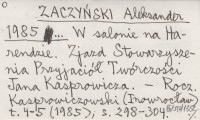 ZACZYŃSKI Aleksander
1985 ... W salonie na Ha-
rendzie. Zjazd Stowarzysze-
nia Przyjaciół Twórczości
Jana Kasprowicza. — Rocz.
Kasprowiczowski (Inowrocław)
t. 4-5 (1985), s. 298-304.